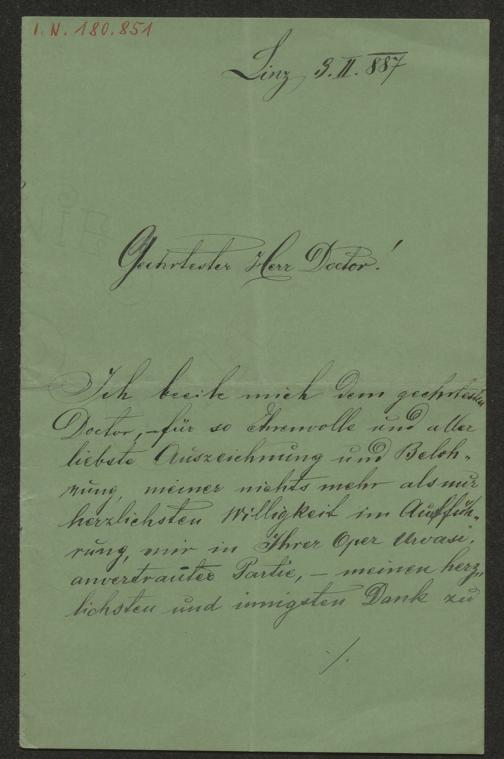 I. N. 180.851
Linz, 9. II. 887
Geehrtester Herr Doctor!
Ich beeile mich dem geehrtesten
Doctor, – für so Ehrenvolle und aller
liebste Auszeichnung und Beloh-
nung, meiner nichts mehr als nur
herzlichsten Willigkeit im Auffüh-
rung, mir in Ihrer Oper Urvasi,
anvertrauter Partie, – meinen herz-
lichsten und innigsten Dank zu
./.